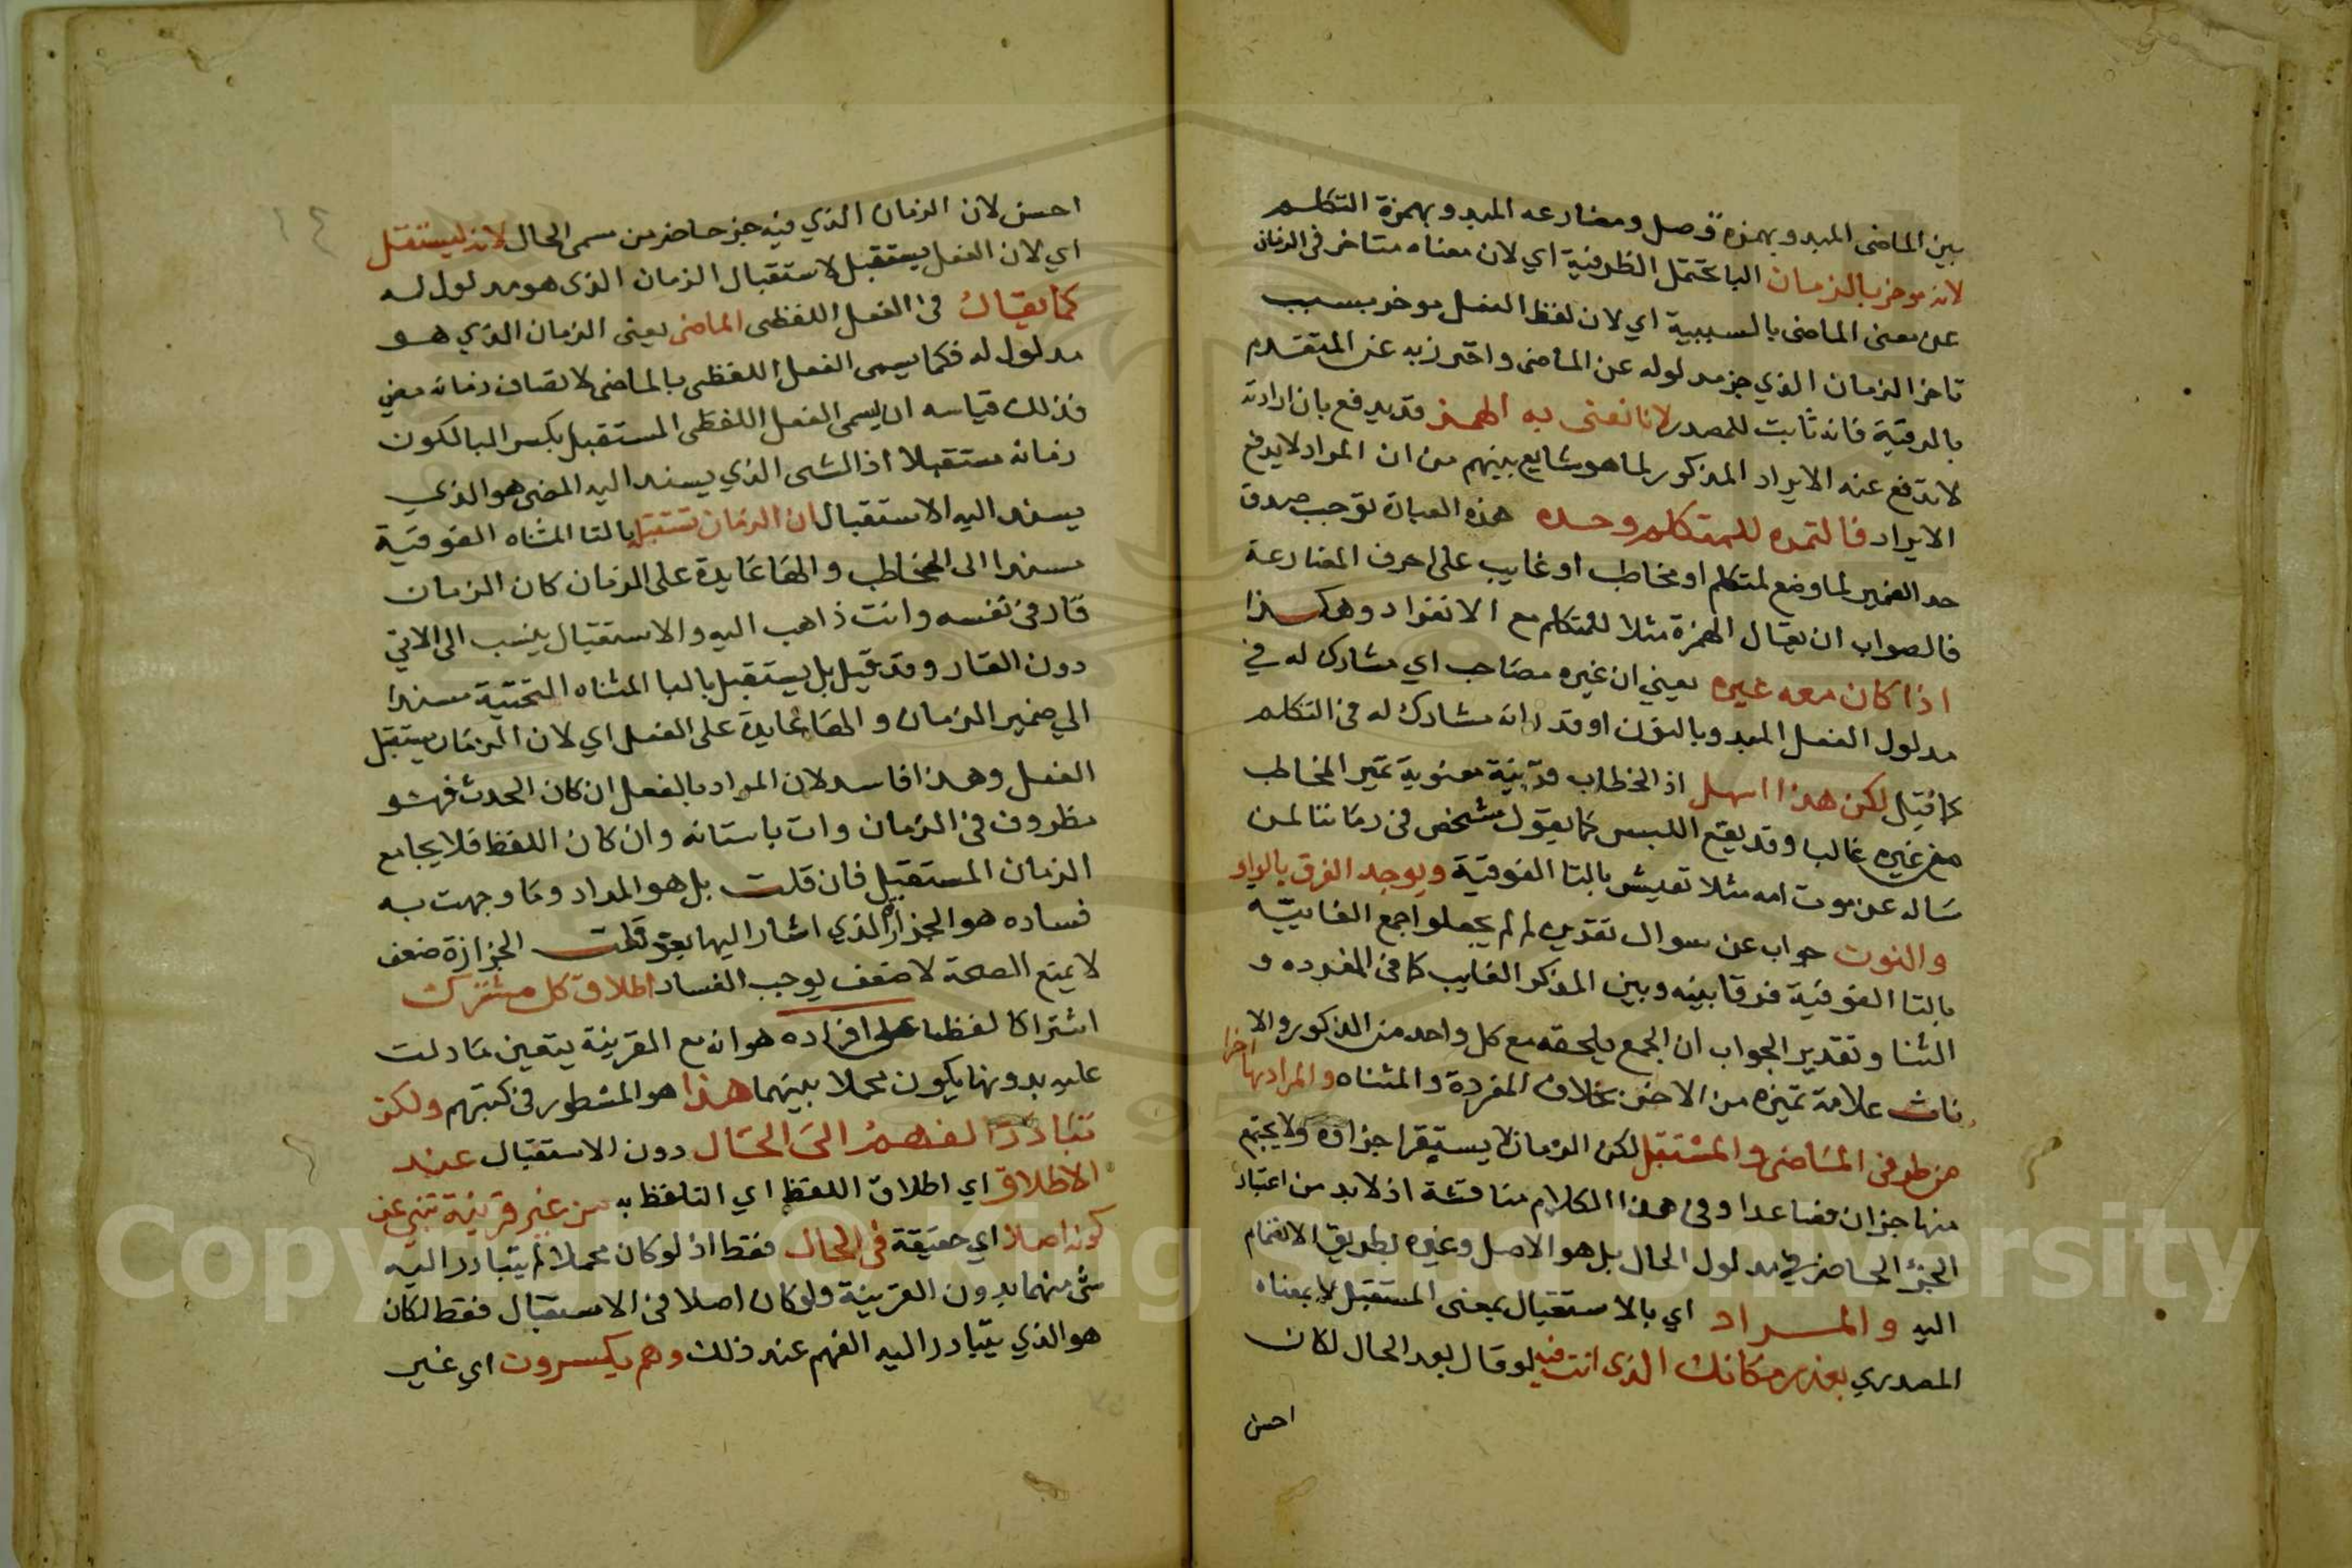 بين الماضى المبدو بهمزة وصل ومضارعه المبدو بهمزة التكلم
لانه موخر بالزمان البا تحتمل الظرفية اي لان معناه متاخر فى الزمان
عن معنى الماضى بالسببية اي لان لفظ الفعل موخر بسبب
تاخر الزمان الذي جز مدلوله عن الماضى واحترز به عن المتقدم
بالرتبة فانه ثابت للمصدر لانا نعنى به الهمز قد يدفع بان ارادته
لا تدفع عنه الايراد المذكور لما هو شايع بينهم من ان المراد لا يدفع
الايراد فالتمده للمتكلم وحده هذه العبارة توجب صدق
حد الضمير لما وضع لمتكلم او مخاطب او غايب على احرف المضارعة
فالصواب ان يقال الهمزة مثلا للمتكلم مع الانفراد وهكذا
اذا كان معه غيره يعني ان غيره مصاحب اي مشارك له في
مدلول الفعل المبدو بالنون او قدر انه مشارك له فى التكلم
كما قيل لكن هذا اسهل اذ الخطاب قرينة معنوية تميز المخاطب
من غيره غالبا وقد يقع اللبس كما يقول شخص فى زماننا لمن
ساله عن موت امه مثلا تعيش بالتا الفوقية ويوجد الفرق بالواو
والنون جواب عن سوال تقديره لم لم يجعلوا جمع الغايبه
بالتا الفوقية فرقا بينه وبين المذكر الغايب كما فى المفرده و
الثنا وتقدير الجواب ان الجمع يلحقه مع كل واحد من الذكور والا
ناث علامة تميزه من الاخر بخلاف المفردة والمثناه والمراد بها اجزا
من طرفى الماضى والمستقبل لكن الزمان لا يستقر اجزاؤه ولا يجتمع
منها جزان فصاعدا وفى هذا الكلام مناقشة اذ لا بد من اعتبار
الجز الحاضر في مدلول الحال بل هو الاصل وغيره بطريق الانضمام
اليه والمراد اي بالاستقبال بمعنى المستقبل لا بمعناه
المصدري بعد زمانك الذى انت فيه لو قال بعد الحال لكان
احسن
احسن لان الزمان الذي فيه جز حاضر من سمى الحال لانه ليستقبل
اي لان الفعل يستقبل لاستقبال الزمان الذى هو مدلول له
كما يقال فى الفعل اللفظى الماضى يعنى الزمان الذي هو
مدلول له فكما يسمى الفعل اللفظى بالماضى لاتصاف زمانه مضي
فذلك قياسه ان يسمى الفعل اللفظى المستقبل بكسر البا لكون
زمانه مستقبلا اذ الشى الذي يسند اليه المضى هو الذي
يسند اليه الاستقبال ان الزمان تستقبله بالتا المثناه الفوقية
مسندا الى المخاطب والها عايدة على الزمان كان الزمان
قار فى نفسه وانت ذاهب اليه والاستقبال ينسب الى الاتي
دون القار وقد قيل بل يستقبل باليا المثناه التحتية مسندا
الي ضمير الزمان والها عايدة على الفعل اي لان الزمان يستقبل
الفعل وهذا فاسد لان المراد بالفعل ان كان الحدث فهو
مظروف فى الزمان وات باتيانه وان كان اللفظ فلا يجامع
الزمان المستقبل فان قلت بل هو المراد وما وجهت به
فساده هو الجزازة الذي اشار اليها بقوله قلت الجزازة ضعف
لا يمنع الصحة لا ضعف يوجب الفساد اطلاق كل مشترك
اشتراكا لفظيا على افراده هو انه مع القرينة يتعين ما دلت
عليه بدونها يكون مجملا بينهما هذا هو المشطور فى كتبهم ولكن
تبادر الفهم الى الحال دون الاستقبال عند
الاطلاق اي اطلاق اللفظ اي التلفظ به من غير قرينة تنبى عن
كونه اصلا اي حقيقة فى الحال فقط اذ لو كان مجملا لم يتبادر اليه
شى منهما بدون القرينة ولو كان اصلا فى الاستقبال فقط لكان
هو الذي يتبادر اليه الفهم عند ذلك وهم يكسرون اي غير
Copyright © King Saud University